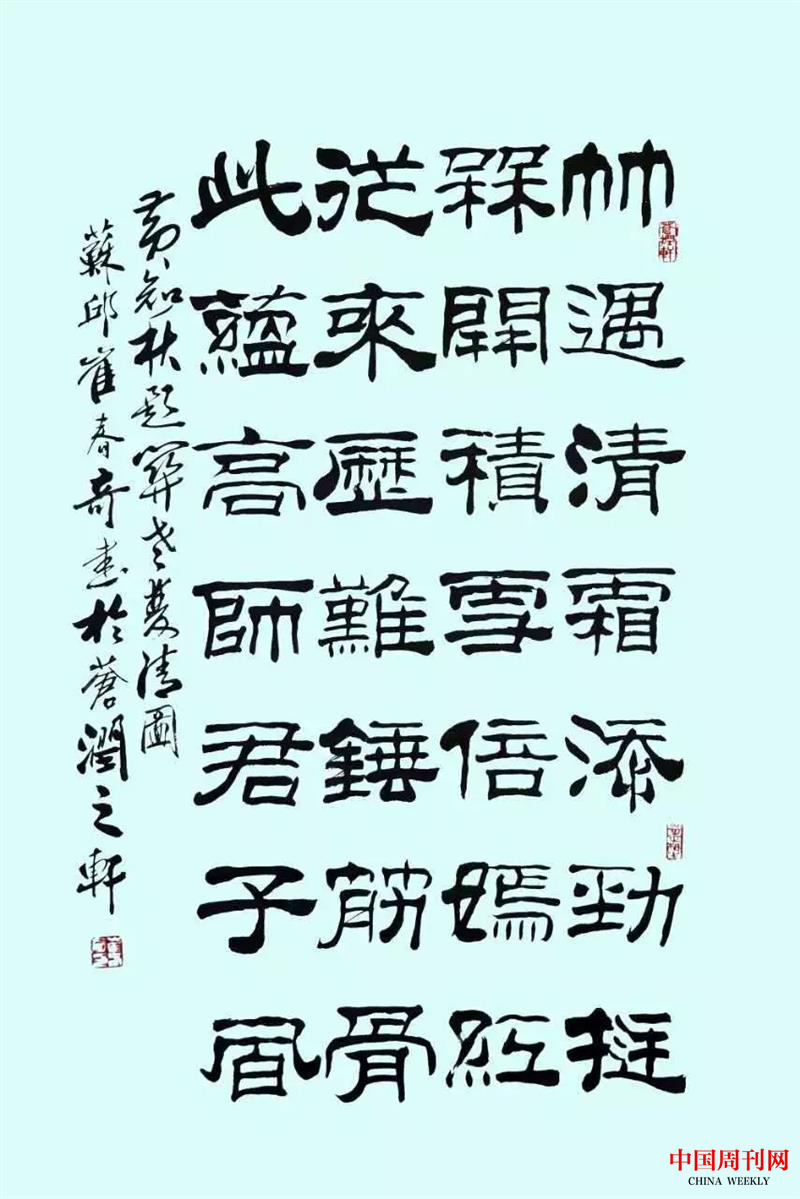 竹遇清霜添勁挺
槑開積雪倍嫣紅
從來歷難錘筋骨
此蘊高師君子風
黄知秋題老雙清圖
蘇邱崔春奇書於蒼潤之軒
中国周刊网
CHINA WEEKLY